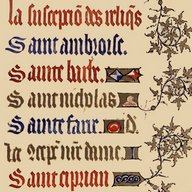 la susception des reliqs
Saint ambroise.
Sainte barbe.
Saint nicholas
Sainte fare. d.
la concepn nre dame
Saint ciprian